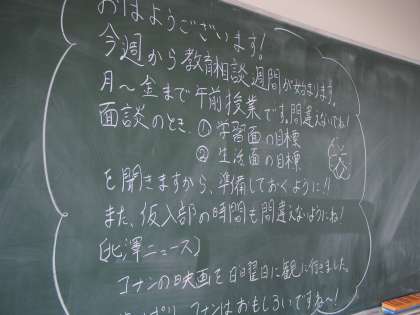 おはようございます!
今週から教育相談週間が始まります。
月~金まで午前授業です。間違えないでね!
面談のとき、① 学習面の目標
② 生活面の目標
を聞きますから、準備しておくように!!
また、仮入部の時間も間違えないようにね!
〔北澤ニュース〕
コナンの映画を日曜日に観に行きました。
コナンはおもしろいですね~!